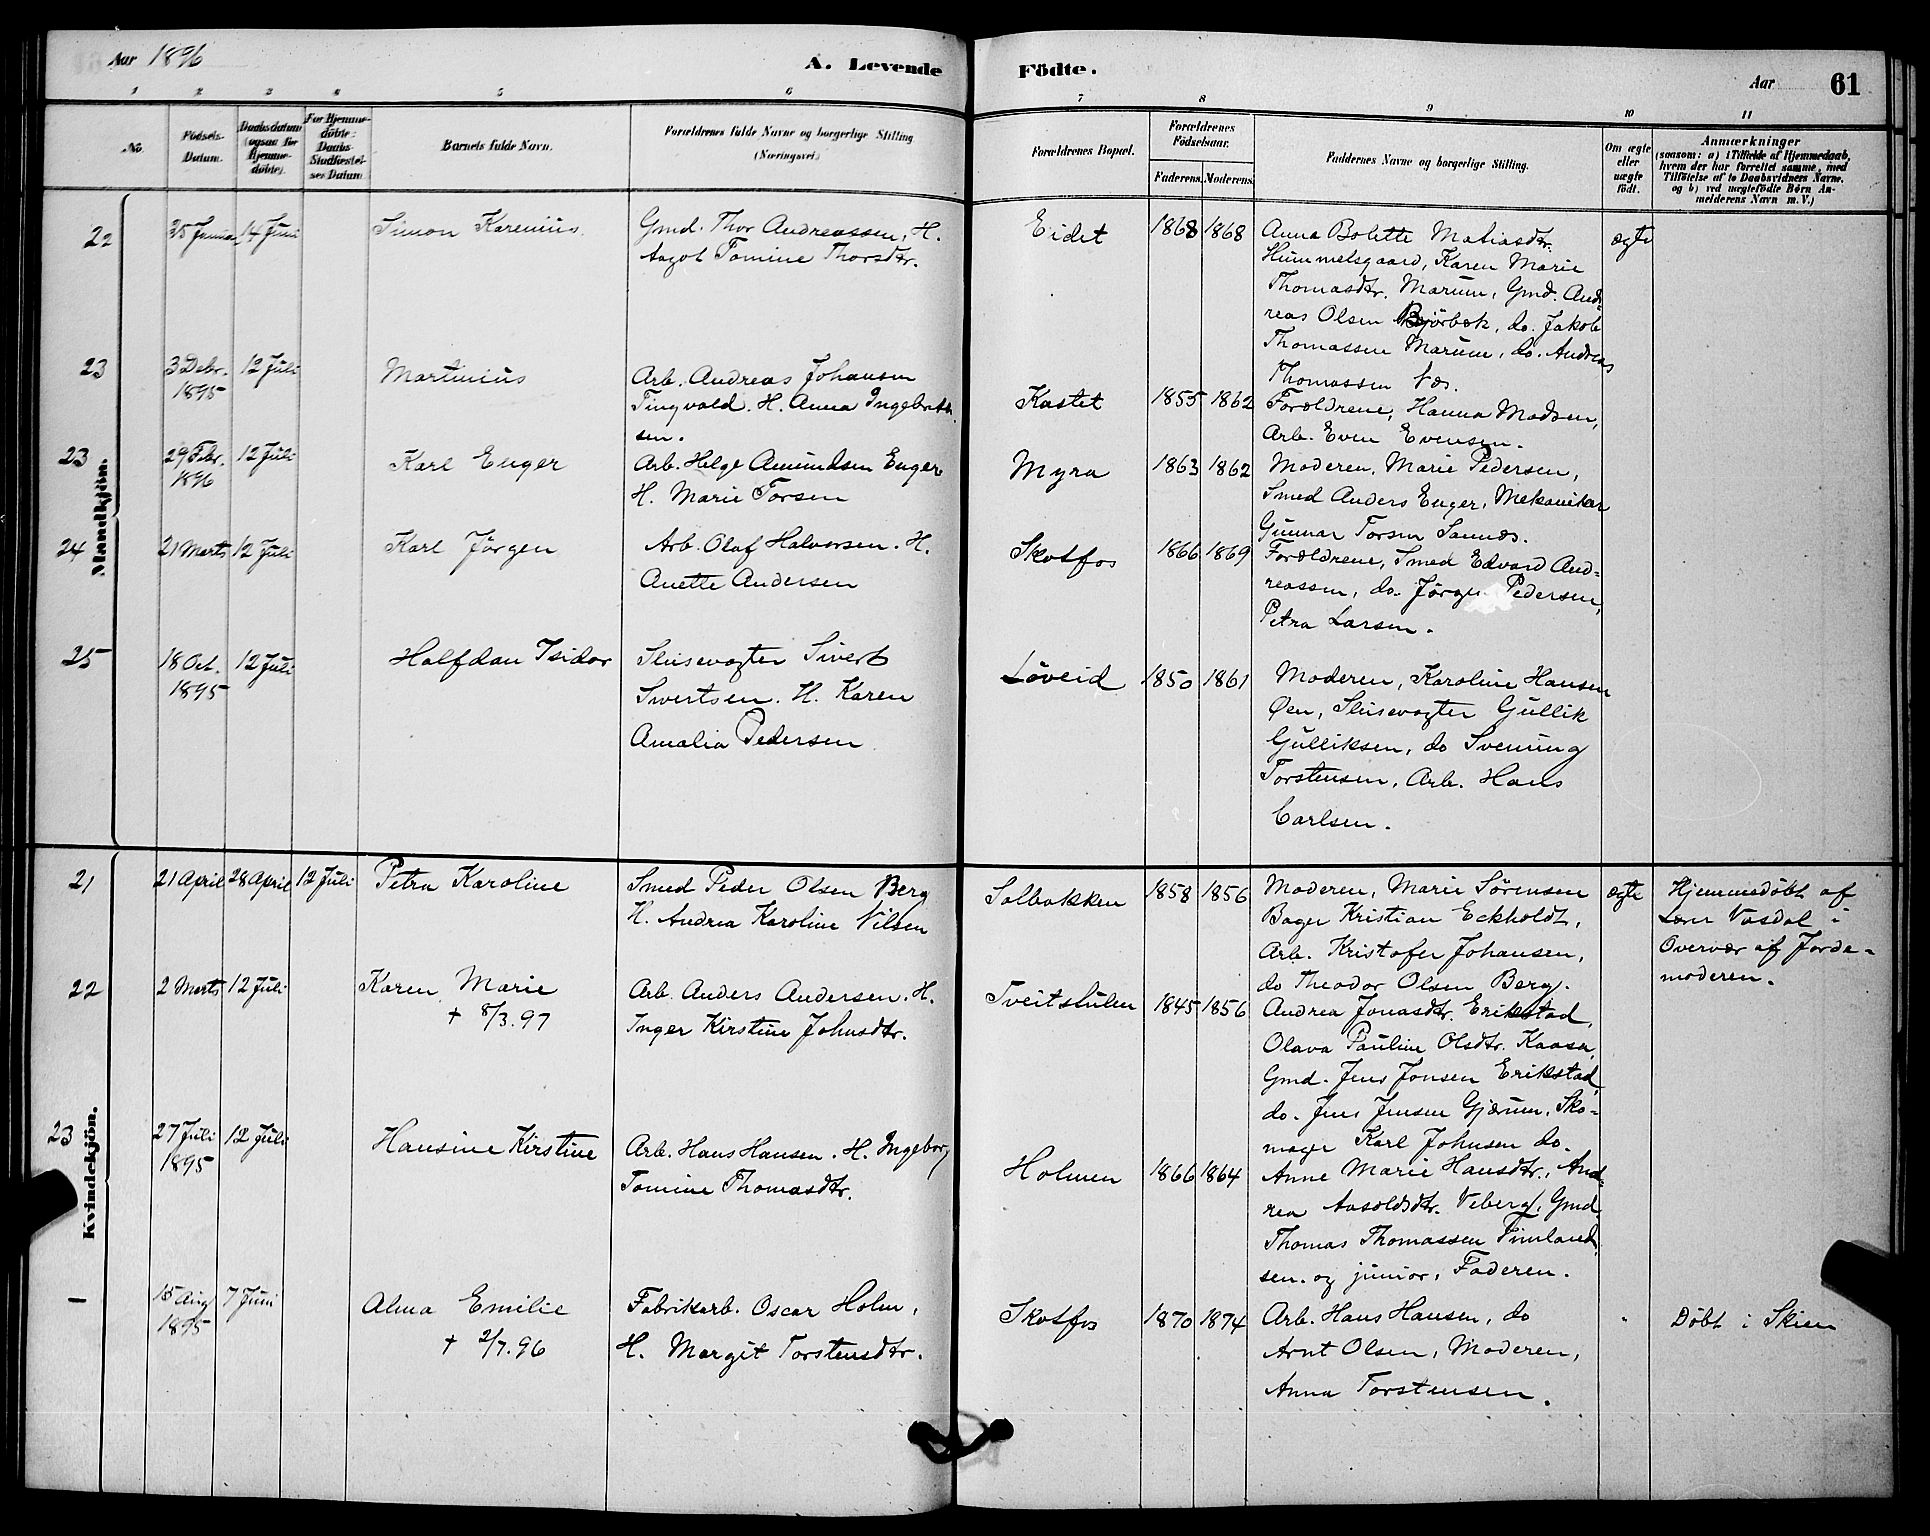 Aar 1896
A. Levende Födte.
Aar 61
1 2 3 4 5 6 7 8 9 10 11
No.
Födsels-
Datum.
Daabsdatum
(ogsaa for
Hjemme-
döbte).
For Hjemme-
döbte:
Daabs-
Stadfæstel-
ses Datum
Barnets fulde Navn.
Forældrenes fulde Navne og borgerlige Stilling
(Næringsvei)
Forældrenes Bopæl.
Forældrenes
Födselsaar.
Faderens. Moderens.
Faddernes Navne og borgerlige Stilling.
Om ægte
eller
uægte
födt.
Anmærkninger
(saasom: a) i Tilfælde af Hjemmedaab,
hvem der har forrettet samme, med
Tilföielse af to Daabsvidners Navne.
og b) ved uægtefödte Börn An-
melderens Navn m. V.)
Mandkjön.
22
25 Januar
14 Juni
Simon Karenius.
Gmd. Thor Andreassen, H.
Aagot Tomine Thorsdtr.
Eidet
1868 1868
Anna Bolette Matiasdtr.
Hummelsgaard, Karen Marie
Thomasdtr. Marum, Gmd. And-
reas Olsen Bjørbæk, do. Jakob
Thomassen Marum, do. Andreas
Thomassen Næs.
ægte
23
3 Debr.
1895
12 Juli
Martinius
Arb. Andreas Johansen
Tingvald. H. Anna Ingebrett-
sen.
Kastet
1855 1862
Forældrene, Hanna Madsen,
Arb. Even Evensen.
23
29 Febr.
1896
12 Juli
Karl Enger
Arb. Helge Amundsen Enger
H. Marie Torsen
Myra
1863 1862
Moderen, Marie Pedersen,
Smed Anders Enger, Mekaniker
Gunnar Torsen Sannes.
24
21 Marts
12 Juli
Karl Jörgen
Arb. Olaf Halvorsen. H.
Anette Andersen
Skotfos
1866 1869
Forældrene, Smed Edvard And-
reassen, do. Jørgen Pedersen,
Petra Larsen.
25
18 Oct.
1895
12 Juli
Halfdan Isidor
Slusevogter Sivert
Sivertsen. H. Karen
Amalia Pedersen
Løveid
1850 1861
Moderen, Karoline Hansen
Øen, Slusevogter Gullik
Gulliksen, do Svenung
Torstensen, Arb. Hans
Carlsen.
Kvindekjön.
21
21 April
28 April
12 Juli
Petra Karoline
Smed Peder Olsen Berg
H. Andrea Karoline Nilsen
Solbakken
1858 1856
Moderen, Marie Sørensen
Bager Kristian Eckholdt,
Arb. Kristofer Johansen,
do Theodor Olsen Berg.
ægte
Hjemmedøbt af
Vasdal i
Overvær af Jorde-
moderen.
22
2 Marts
12 Juli
Karen Marie
+ 8/3.97
Arb. Anders Andersen. H.
Inger Kirstine Johnsdtr.
Tveitstulen
1845 1856
Andrea Jonasdtr. Erikstad,
Olava Pauline Olsdtr. Kaasa,
Gmd. Jens Jonsen Erikstad,
do. Jens Jensen Gjærum, Sko-
mager Karl Johnsen do.
23
27 Juli
1895
12 Juli
Hansine Kirstine
Arb. Hans Hansen. H. Ingeborg
Tomine Thomasdtr.
Holmen
1866 1864
Anne Marie Hansdtr., And-
rea Aasoldsdtr. Veberg, Gmd.
Thomas Thomassen Finland
sen. og junior, Faderen.
—
15 Aug
1895
7 Juni
Alma Emilie
+ 2/7.96
Fabrikarb. Oscar Holm,
H. Margit Torstensdtr.
Skotfos
1870 1874
Arb. Hans Hansen, do
Arnt Olsen, Moderen,
Anna Torstensen.
"
Døbt i Skien